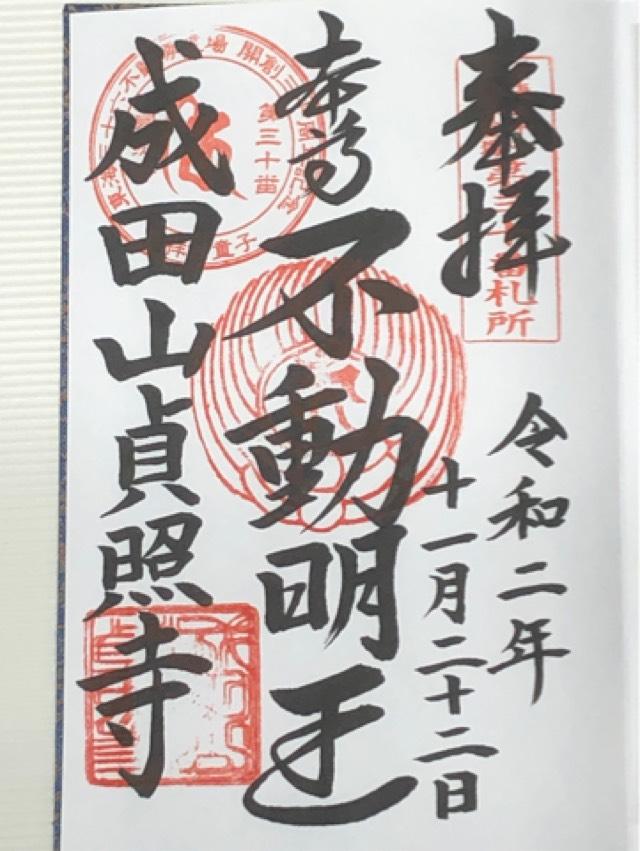 奉拝
番札所
令和二年
十一月二十二日
本尊 不動明王
場 開創三
第三十番
童子
成田山貞照寺